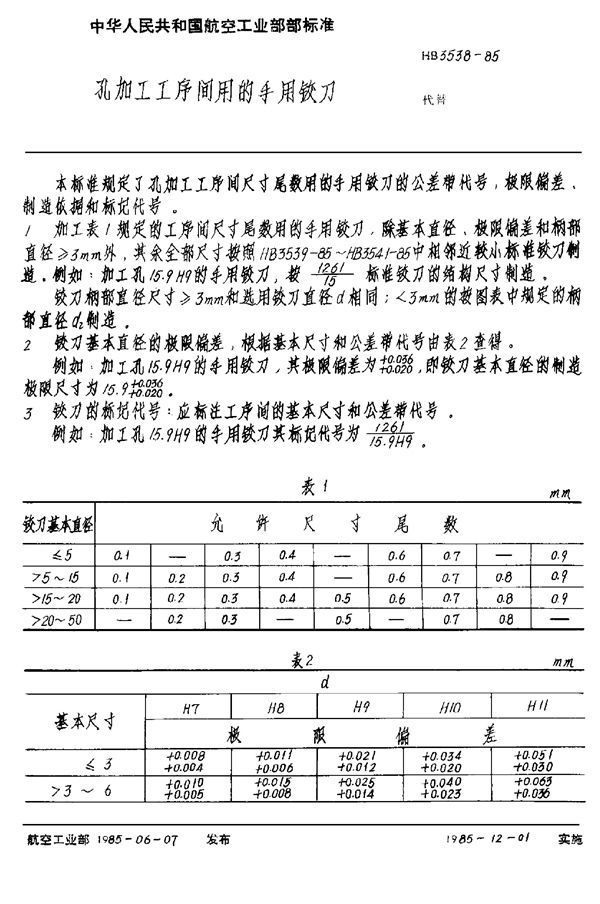 中华人民共和国航空工业部部标准
HB3538-85
孔加工工序间用的手用铰刀
代替
本标准规定了孔加工工序间尺寸尾数用的手用铰刀的公差带代号，极限偏差、
制造依据和标记代号 。
1 加工表1规定的工序间尺寸尾数用的手用铰刀，除基本直径、极限偏差和柄部
直径≥3mm外，其余全部尺寸按照HB3539-85～HB3541-85中相邻近较小标准铰刀制
造。例如：加工孔15.9H9的手用铰刀，按 1261/15 标准铰刀的结构尺寸制造 。
铰刀柄部直径尺寸≥3mm和选用铰刀直径d相同；<3mm的按图表中规定的柄
部直径d₂制造 。
2 铰刀基本直径的极限偏差，根据基本尺寸和公差带代号由表2查得 。
例如：加工孔15.9H9的手用铰刀，其极限偏差为 +0.036 +0.020，即铰刀基本直径的制造
极限尺寸为15.9 +0.036 +0.020。
3 铰刀的标记代号：应标注工序间的基本尺寸和公差带代号 。
例如：加工孔15.9H9的手用铰刀其标记代号为 1261/15.9H9 。
表1 mm
铰刀基本直径 允许尺寸尾数
≤5 0.1 — 0.3 0.4 — 0.6 0.7 — 0.9
>5～15 0.1 0.2 0.3 0.4 — 0.6 0.7 0.8 0.9
>15～20 0.1 0.2 0.3 0.4 0.5 0.6 0.7 0.8 0.9
>20～50 — 0.2 0.3 — 0.5 — 0.7 0.8 —
表2 mm
d
基本尺寸 H7 H8 H9 H10 H11
极限偏差
≤3 +0.008 +0.004 +0.011 +0.006 +0.021 +0.012 +0.034 +0.020 +0.051 +0.030
>3～6 +0.010 +0.005 +0.015 +0.008 +0.025 +0.014 +0.040 +0.023 +0.063 +0.036
航空工业部 1985-06-07 发布 1985-12-01 实施